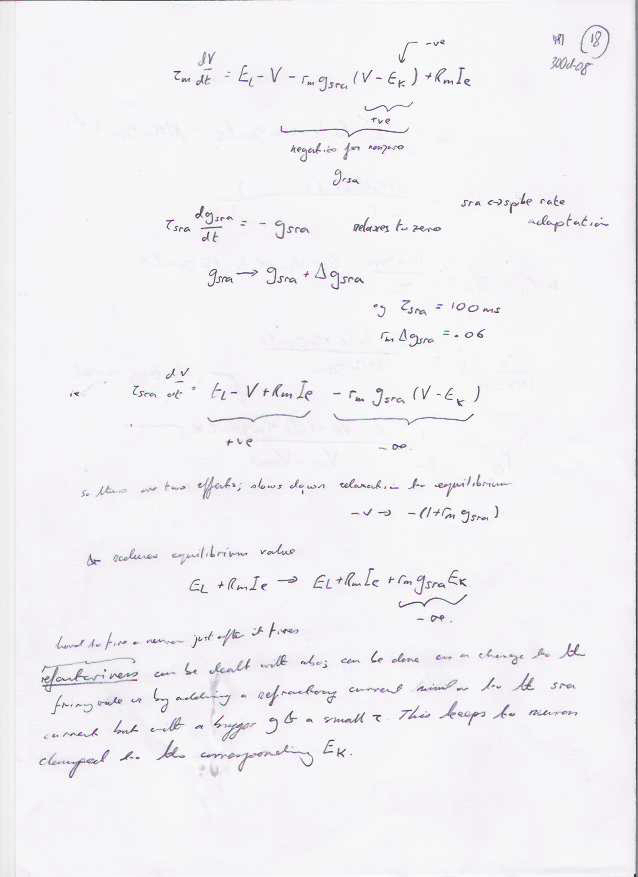 18
30Oct08
-ve
τ_m dV/dt = E_L - V - r_m g_sra (V - E_K) + R_m I_e
+ve
negative for nonzero
g_rsa
sra ↔ spike rate
adaptation
τ_sra dg_sra/dt = - g_sra relaxes to zero
g_sra → g_sra + Δg_sra
eg τ_sra = 100ms
r_m Δg_sra = .06
ie τ_sra dV/dt = E_L - V + R_m I_e - r_m g_sra (V - E_K)
+ve -ve.
so there are two effects; slows down relaxation to equilibrium
-V → -(1+r_m g_sra)
& reduces equilibrium value
E_L + R_m I_e → E_L + R_m I_e + r_m g_sra E_K
-ve.
hard to fire a neuron just after it fires
refractoriness can be dealt with also; can be done as a change to the
firing rule or by adding a refractory current similar to the sra
current but with a bigger g & a small τ. This keeps the neuron
clamped to the corresponding E_K.